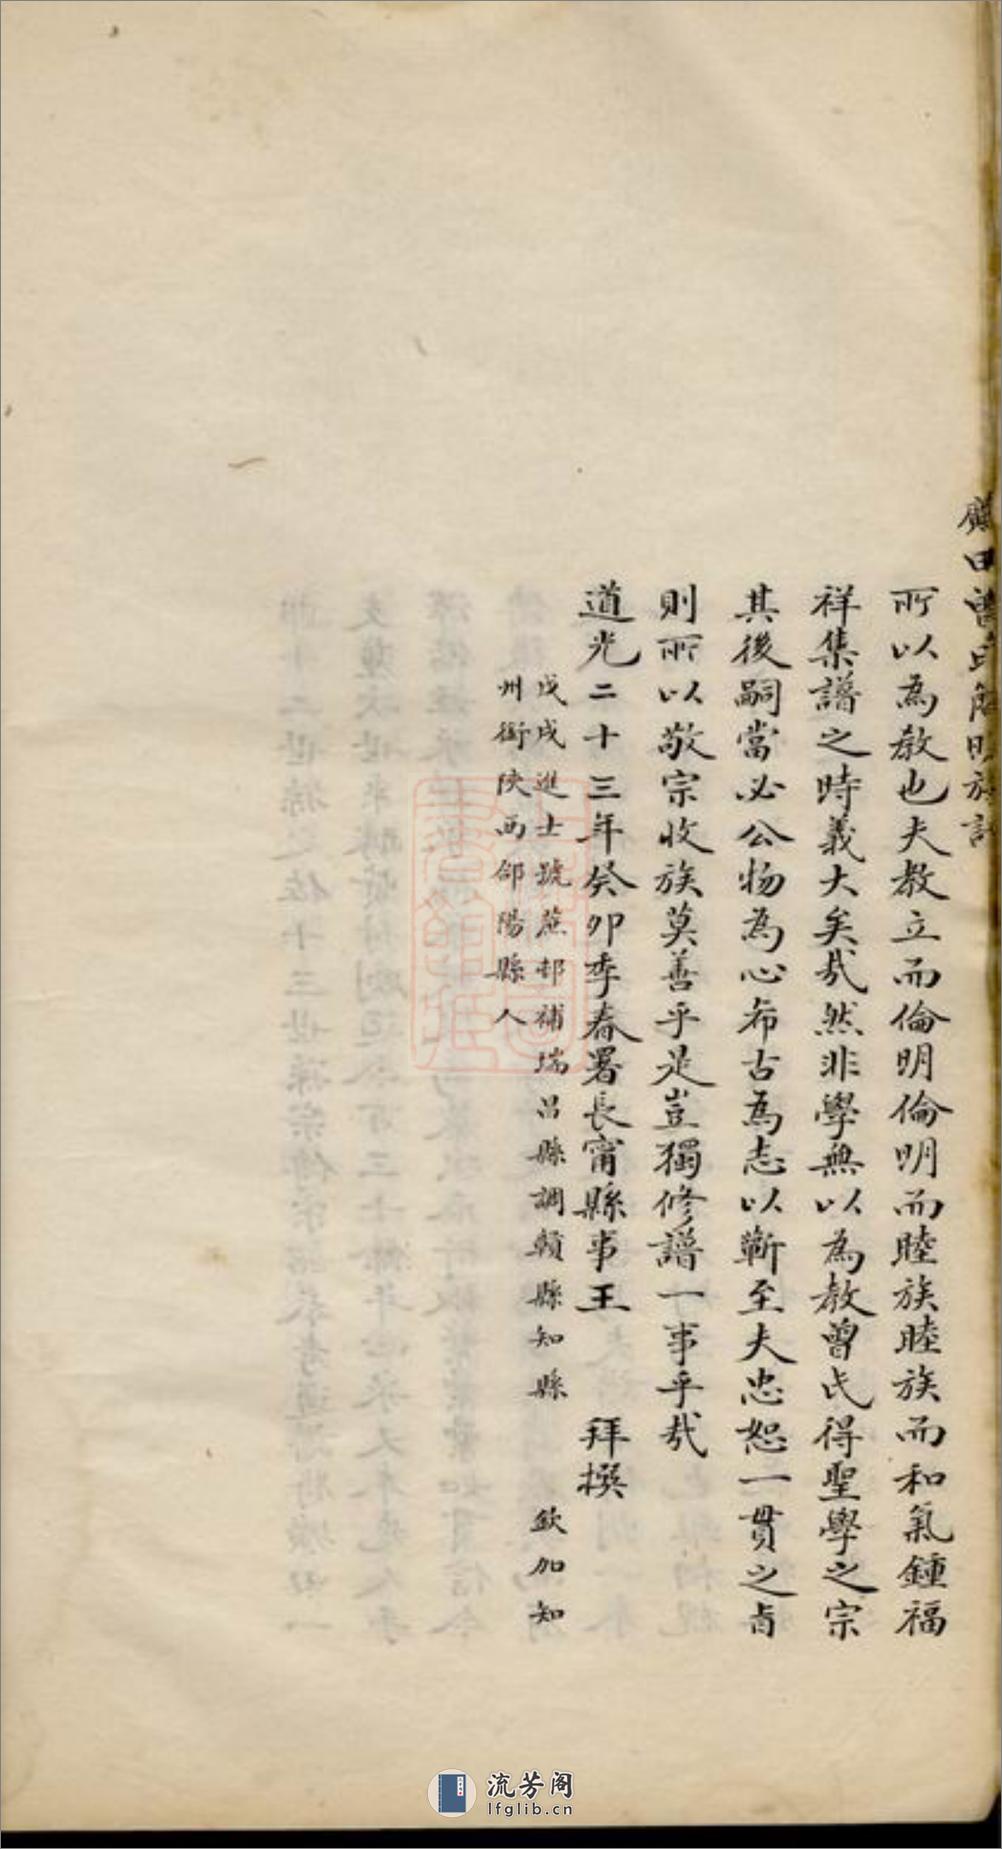 田曾氏解明族
所以為教也夫教立而倫明倫明而睦族睦族而和氣鍾福
祥集譜之時義大矣哉然非學無以為教曾氏得聖學之宗
其後嗣當必公物為心希古為志以蘄至夫忠恕一貫之旨
則所以敬宗收族莫善乎是豈獨修譜一事乎哉
道光二十三年癸卯季春署長甯縣事王 拜撰
戊戌進士號蔗邨補瑞昌縣調贛縣知縣 欽加知
州銜陝西郃陽縣人
流芳阁
lfglib.cn